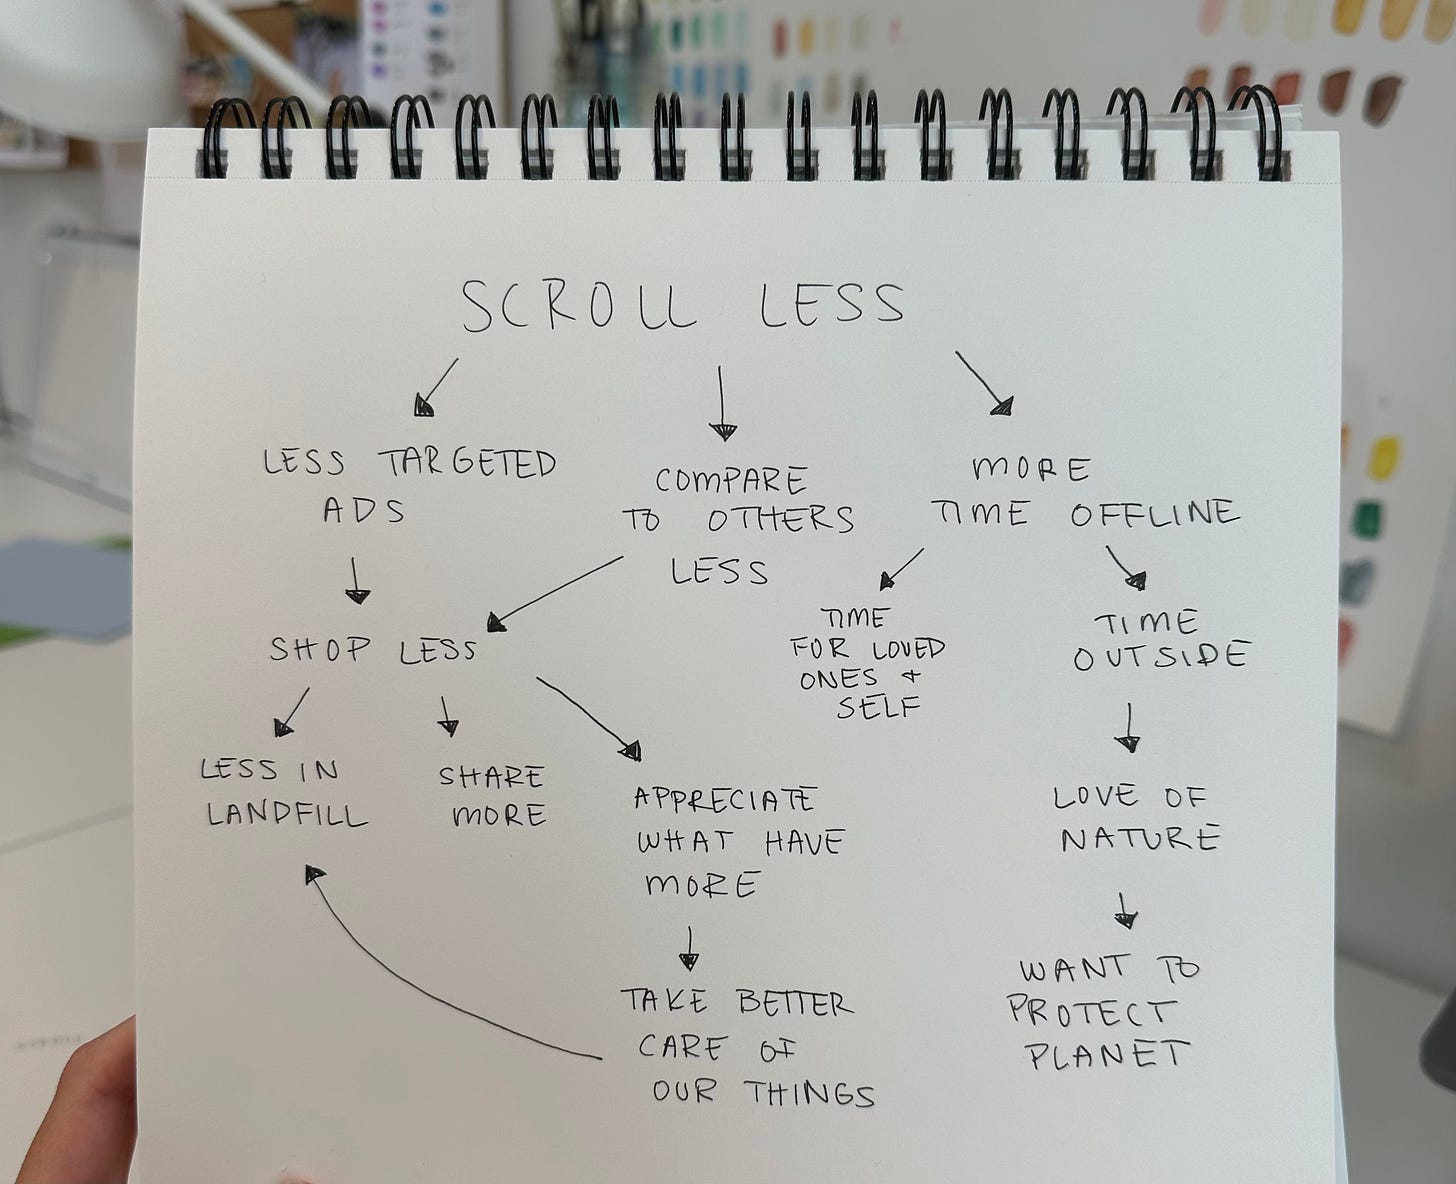 SCROLL LESS
LESS TARGETED
ADS
COMPARE
TO OTHERS
LESS
MORE
TIME OFFLINE
SHOP LESS
TIME
FOR LOVED
ONES +
SELF
TIME
OUTSIDE
LESS IN
LANDFILL
SHARE
MORE
APPRECIATE
WHAT HAVE
MORE
LOVE OF
NATURE
TAKE BETTER
CARE OF
OUR THINGS
WANT TO
PROTECT
PLANET